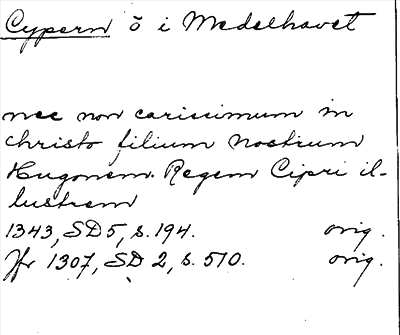 Cypern ö i Medelhavet
nec non carissimum in
christo filium nostrum
Hugonem Regem Cipri il-
lustrem
1343, SD 5, s. 194. orig.
Jfr 1307, SD 2, s. 510. orig.